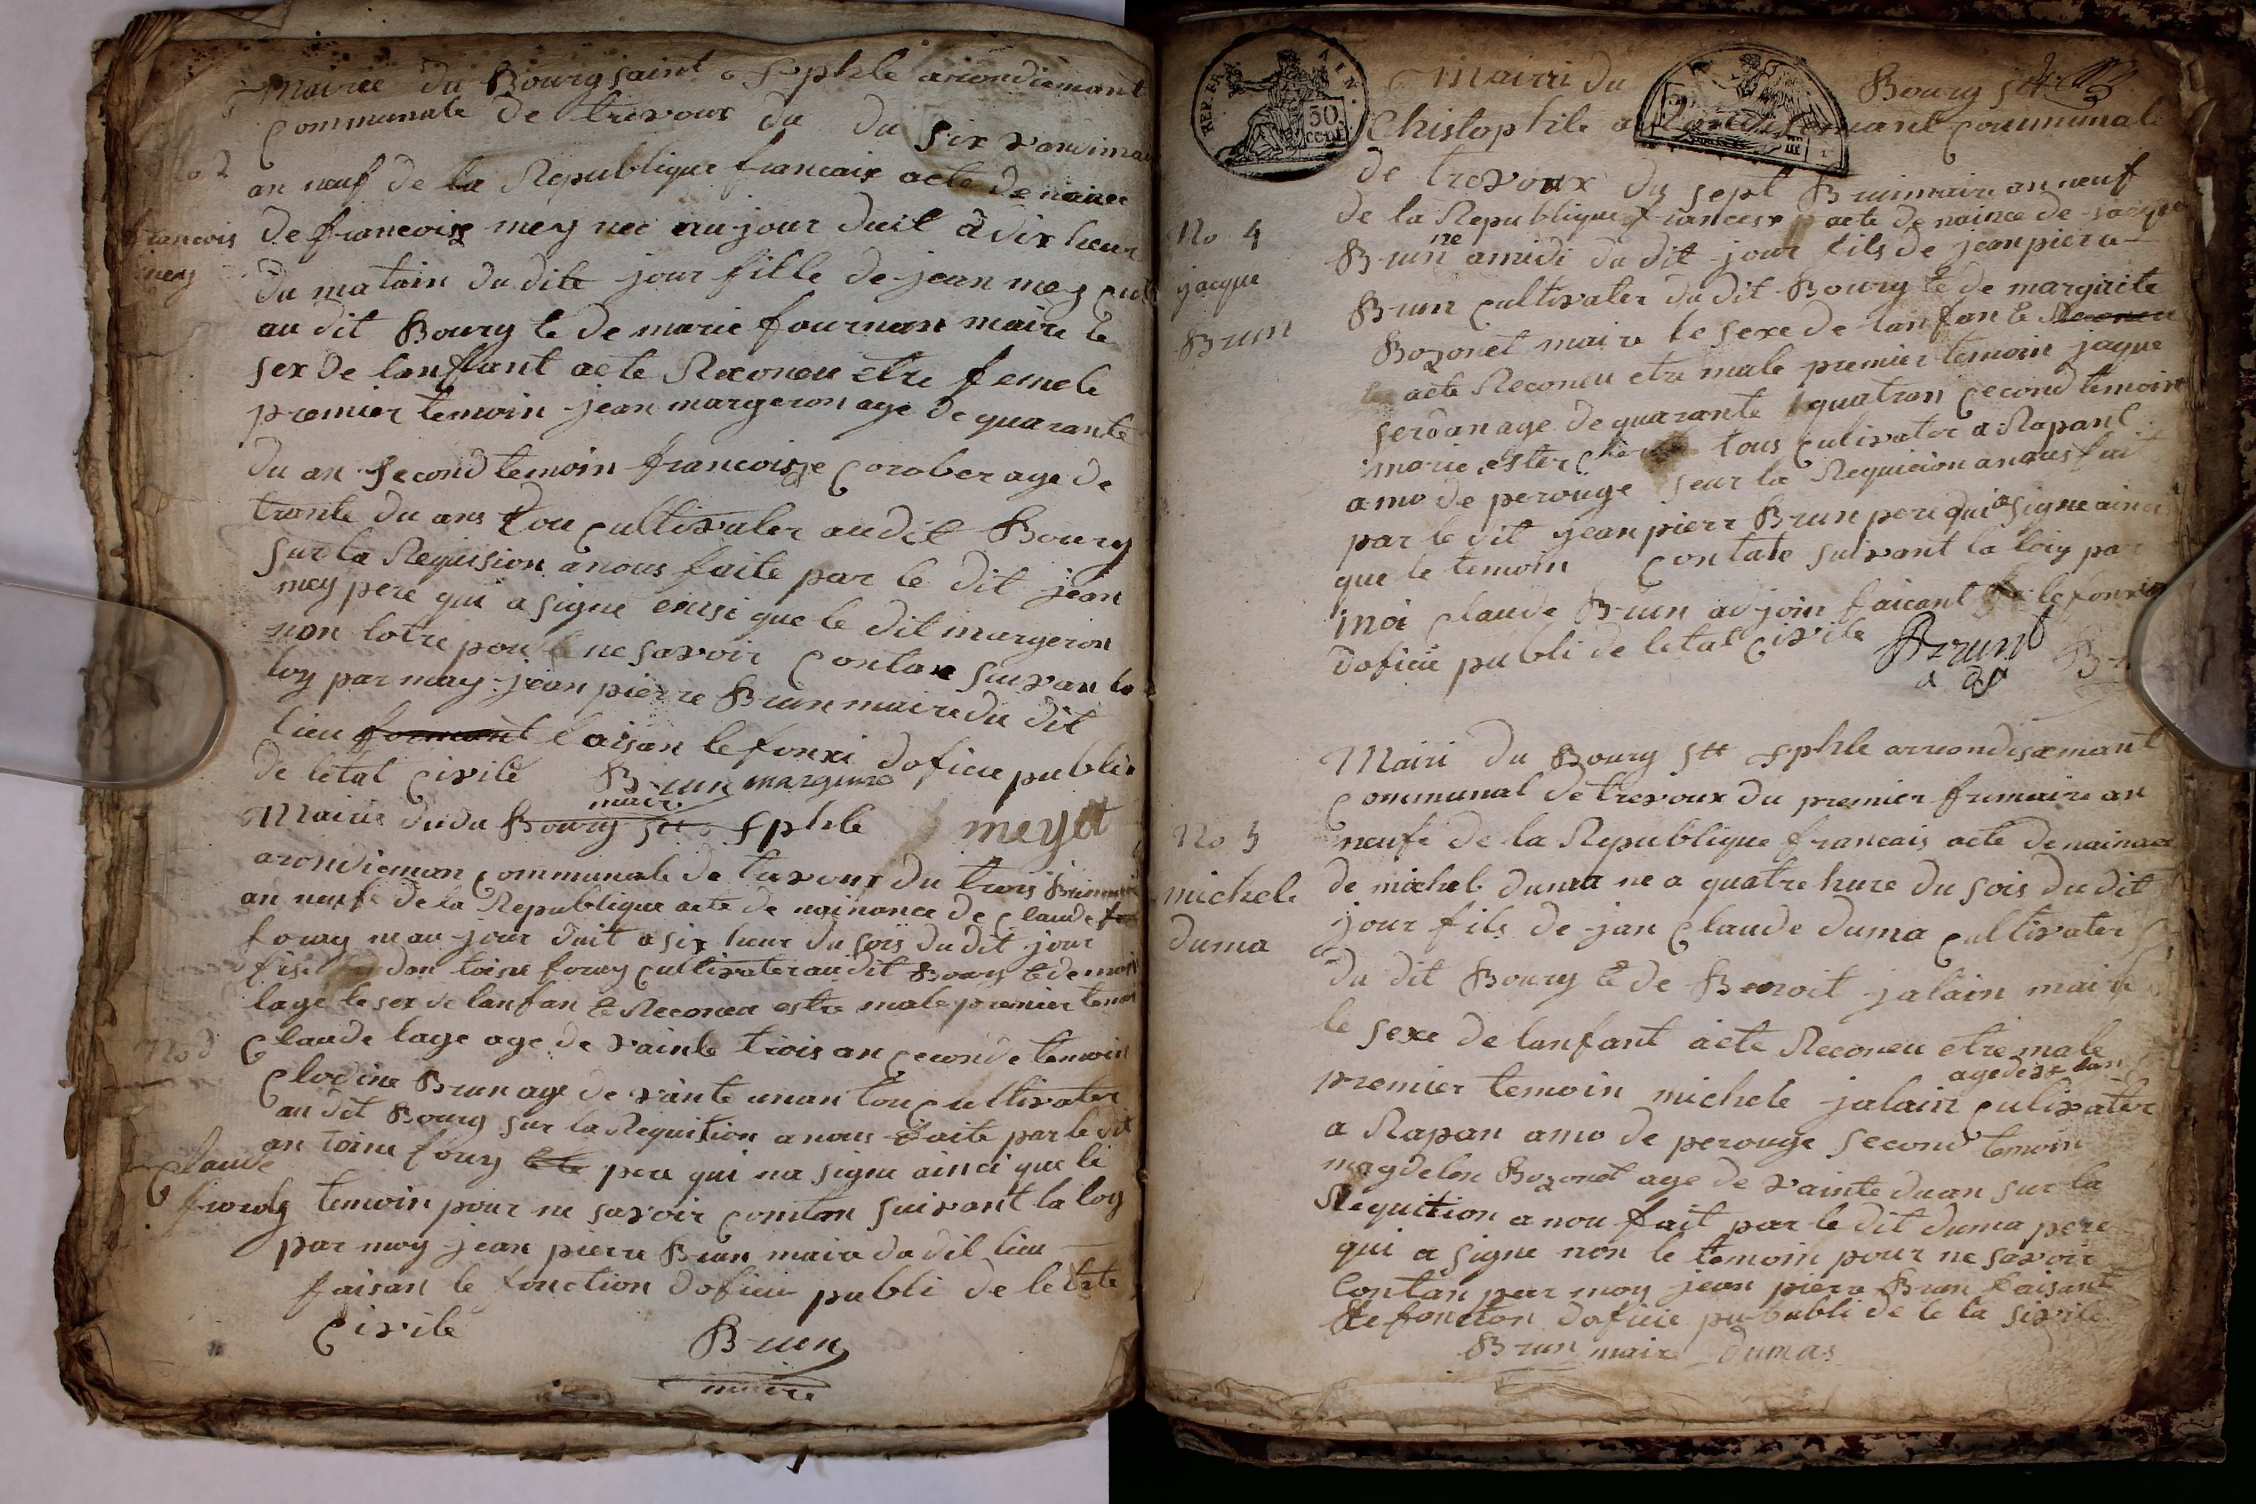 Mairie du Bourg saint fphle arrondiemant
Communale de trevoux du du six vandimai
No 2
an neuf de la Republique francaix acte de naince
francois
mey
de francoise mey nee aujour duit a dix heur
du matain du dite jour fille de jean mey cult
au dit Bourg te de marie fournian maire le
sex de lanffant acte Reconeu etre femele
premier temoin jean margeron age de quarante
du an second temoin francoise Corober age de
trante du ans tou Cultivater au dit Bourg
sur la Requision a nous faite par le dit jean
mey pere qui a signe einsi que le dit margeron
non lotre pour ne savoir Contan suivan la
loy par moy jean pierre Brun maire du dit
lieu formant faisan le fonxi doficie publie
de letat Civile Brun margeron
maire
Mairie du du Bourg stt fphle meyet
arondieman Communale de trevoux du trois Brimaire
an neufe de la Republique acte de nainance de Claude
foury ne au jour duit a six heur du sois du dit jour
fis dan toine foury Cultivater au dit Bourg te de mari
lage le sex de lanfan te Reconeu estre male premier temoin
No 3
Claude lage age de vainte trois an Ceconde temoin
Clodine Brun age de vainte unan tou Cultivater
au dit Bourg sur la Requition a nous faite par le dit
an toine foury le pere qui na signe ainci que le
Claude
fourdy
temoin pour ne savoir Contan suivant la loy
par moy jean piere Brun maire du dit lieu
faisan le fonction doficie publi de le tate
Civile
Brun
maire
REP. FRA. AIN.
50.
CO.DE
Mairi du Bourg stt
Christophle arondisemant Communale
de trevoux du sept Brimaire an neuf
de la Republique francese acte de naince de jacque
No 4
jacque
Brun
Brun ne a midi du dit jour fils de jean piere
Brun Cultivater du dit Bourg te de margirite
Bozonet maire le sexe de lanfan te Reconeu
acte Reconeu etre male premier temoin jaque
serdan age de quarante quatran Cecond temoin
marie ester tous Cultivater a Rapant
amo de perouge seur la Requicion a nous fait
par le dit jean pierr Brun pere qui a signe ainci
que le temoin Contate suivant la loiy par
moi Claude Brun adjoin faicant le fonxion
doficie publi de letat Civile Brun
a dj
Mairi du Bourg stt fphle arrondisemant
Communal de trevoux du premier frimaire an
No 5
michele
duma
neufe de la Republique francais acte de nainance
de michele duma ne a quatre hure du sois du dit
jour fils de jan Claude duma Cultivater
du dit Bourg te de Benoit jalain maire
le sexe de lanfant acte Reconeu etre male
premier temoin michele jalain Culivater
a Rapan amo de perouge second temoin
magdelen Bozonet age de vainte duan sur la
Requition a nou fait par le dit duma pere
qui a signe non le temoin pour ne savoir
Contan par moy jean piere Brun faisant
le fonction doficie pu publi de le ta sivile
Brun maire dumas